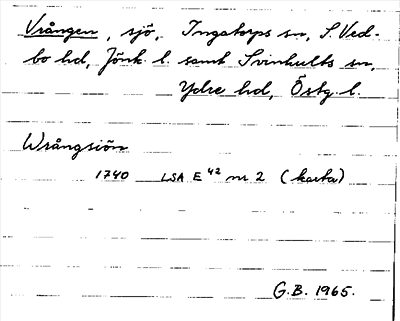 Vrången, sjö, Ingatorps sn, S. Ved-
bo hd, Jönk. l. samt Svinhults sn,
Ydre hd, Östg. l.
Wrångsiön
1740 LSA E 42 nr 2 (karta)
G.B. 1965.